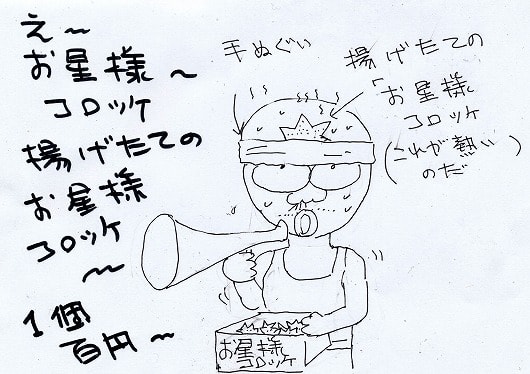 え～
お星様～
コロッケ
揚げたての
お星様
コロッケ
～
1個
百円～
手ぬぐい
揚げたての
「お星様
コロッケ
(これが熱い
のだ)
お星様
コロッケ